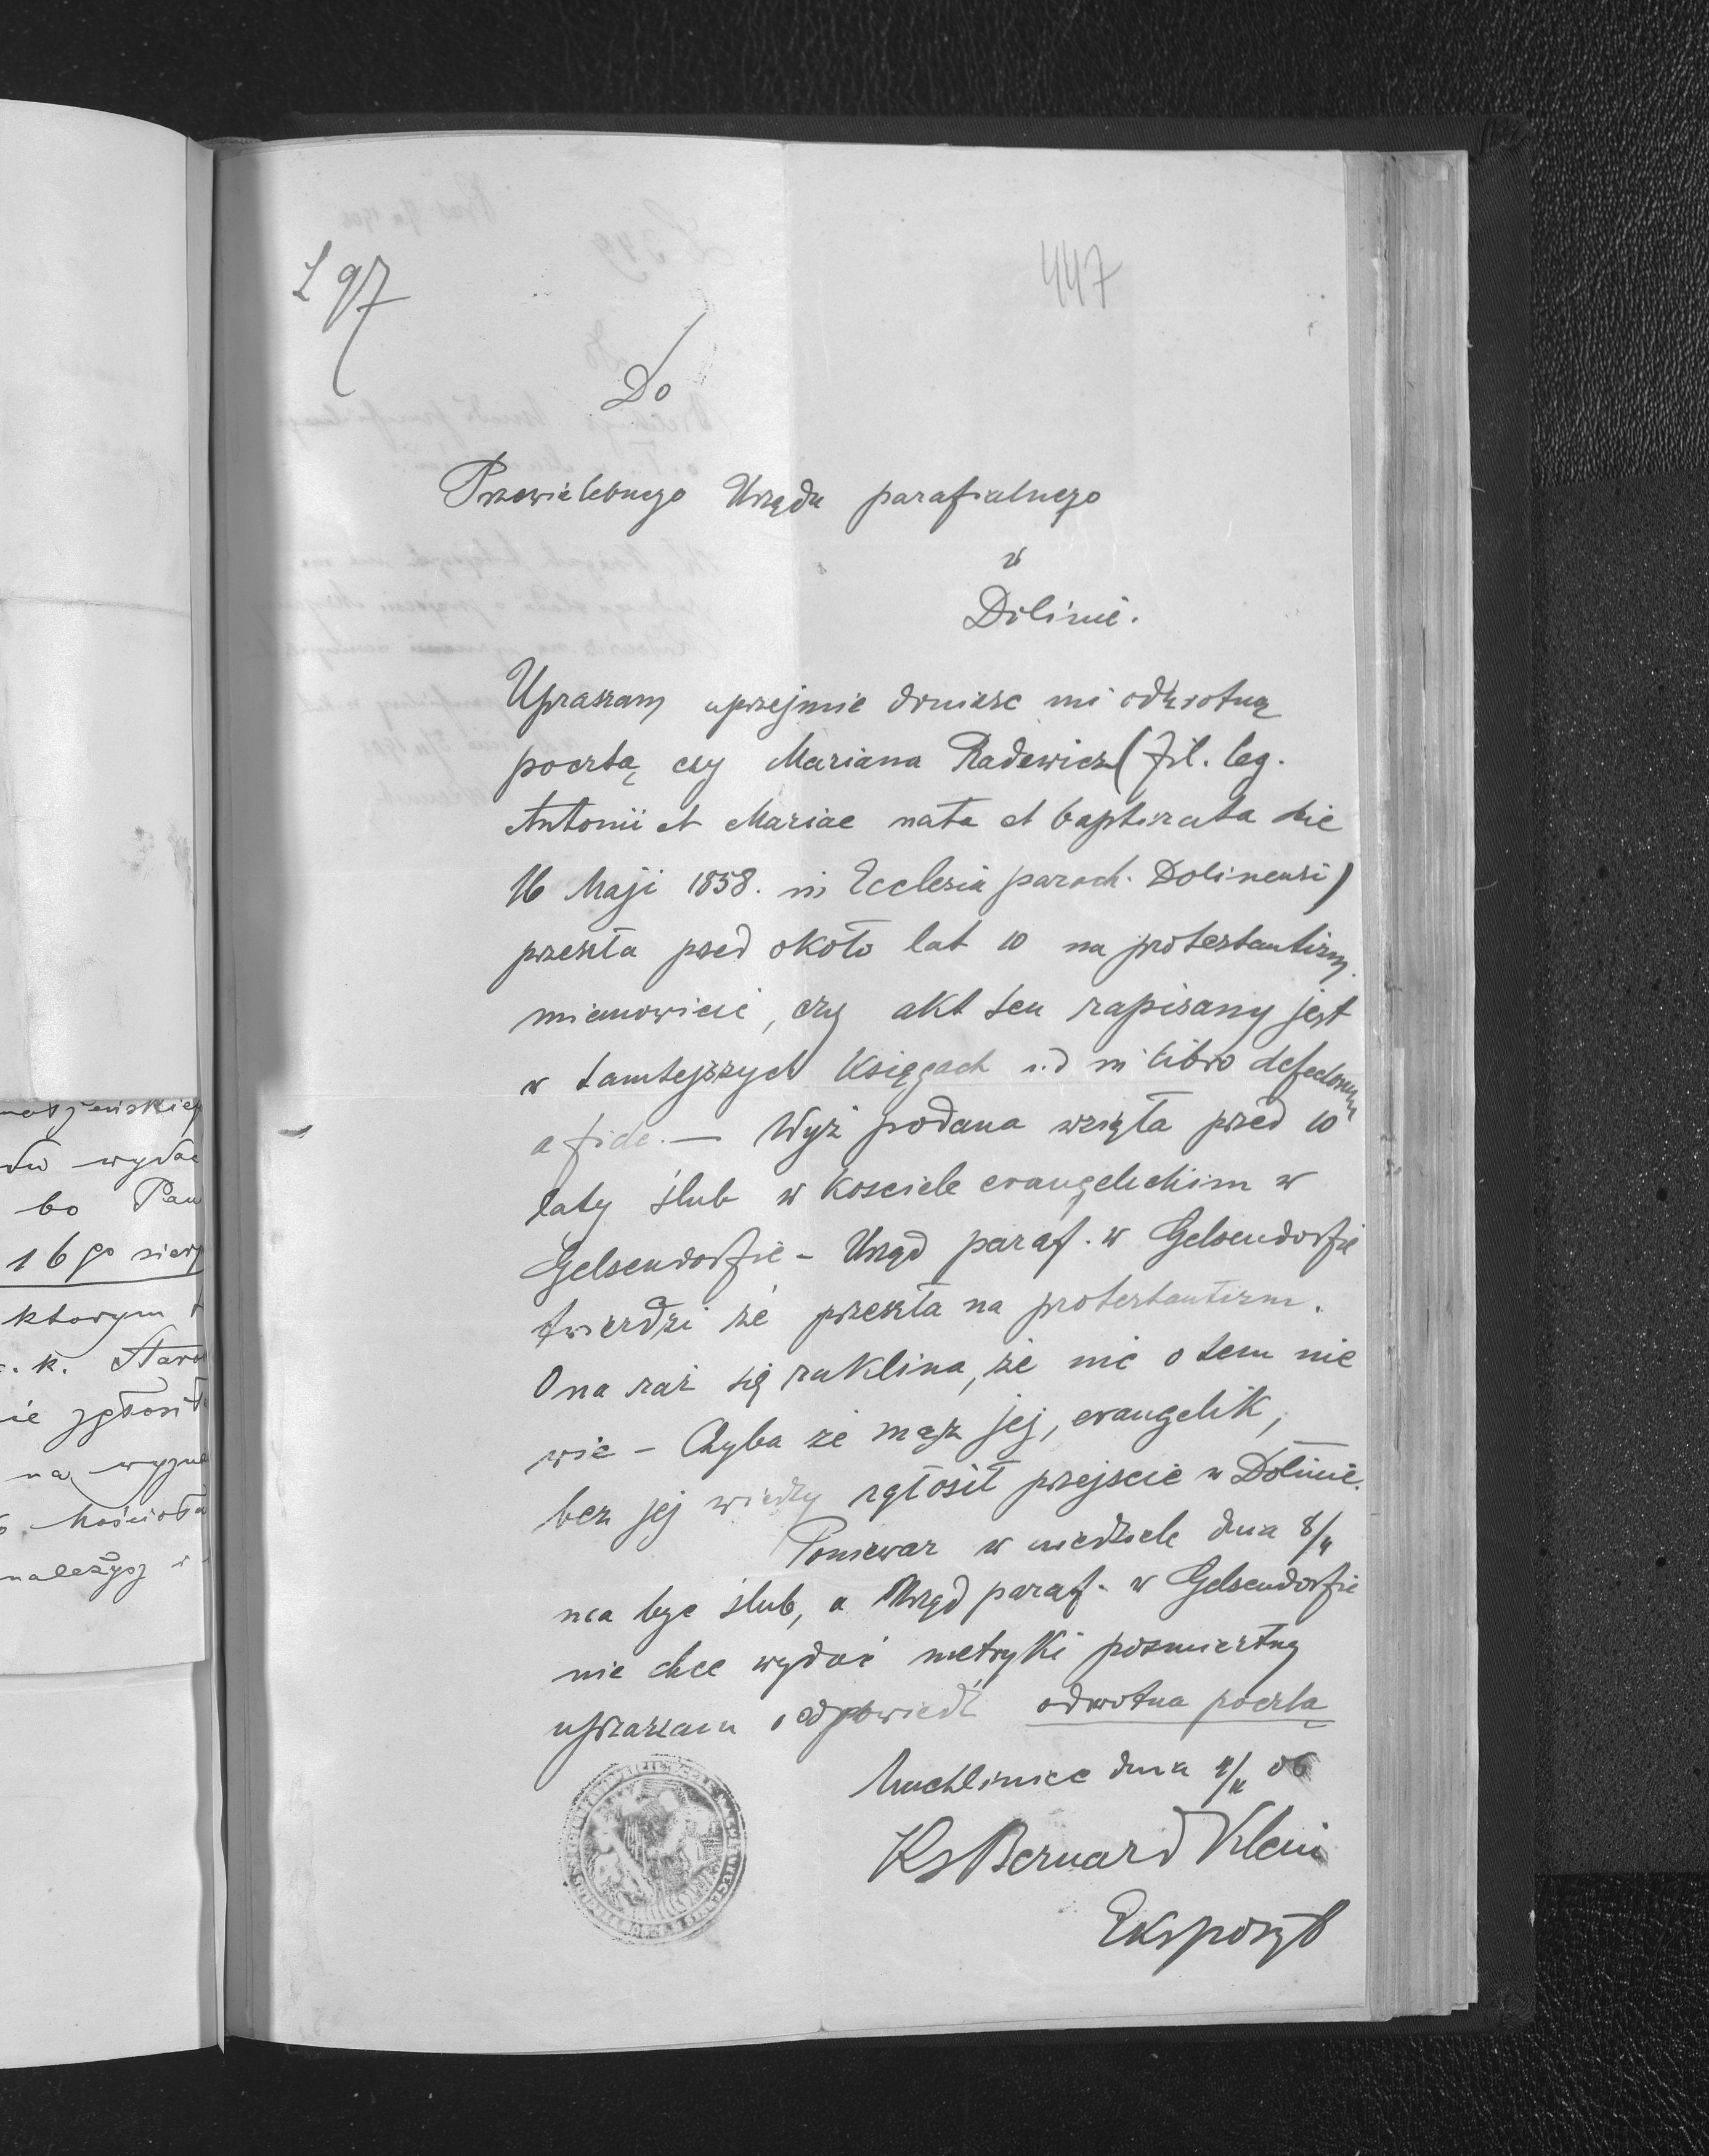 L 97
447
Do
Przewielebnego Urzędu parafialnego
w
Dolinie.
Upraszam uprzejmie donieść mi odwrotną
pocztą czy Mariana Radewicz (fil. leg.
Antonii et Mariae nata et baptizata die
16 Maji 1858. in Ecclesia paroch. Dolinensi)
przeszła przed około lat 10 na protestantizm
mianowicie, czy akt ten zapisany jest
w tamtejszych Księgach i.d in libro defectorum
a fide. — Wyż podana wzięła przed 10
laty ślub w Kosciele evangelickim w
Gelsendorfie - Urząd paraf. w Gelsendorfie
twierdzi że przeszła na protestantizm.
Ona zaś się zaklina, że nic o tem nie
wie - Chyba że mąż jej, evangelik,
bez jej wiedzy zgłosił przejscie w Dolinie.
Poniewaz w niedziele dnia 8/4
ma byc ślub, a Urząd paraf. w Gelsendorfie
nie chce wydać metryki pośmiertny
upraszam o odpowiedź odwrotna poczta
Machliniec dnia 06
Ks Bernard Klein
Ekspozyt
matżeńskiej
wydać
bo Pan
16go sierp
ktorym
c. k. Staro
nie zgłosił
na wyzna
Kościoła
należysz i